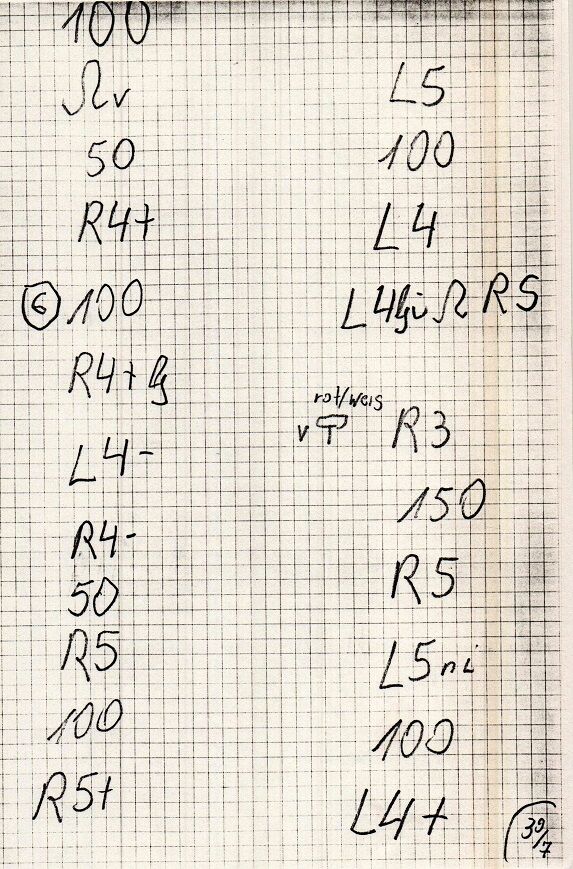 100
Ωv
50
R4+
6 100
R4+ lg
L4-
R4-
50
R5
100
R5+
L5
100
L4
Ω R5
rot/weis
v R3
150
R5
L5 ni
100
L4+
39/7